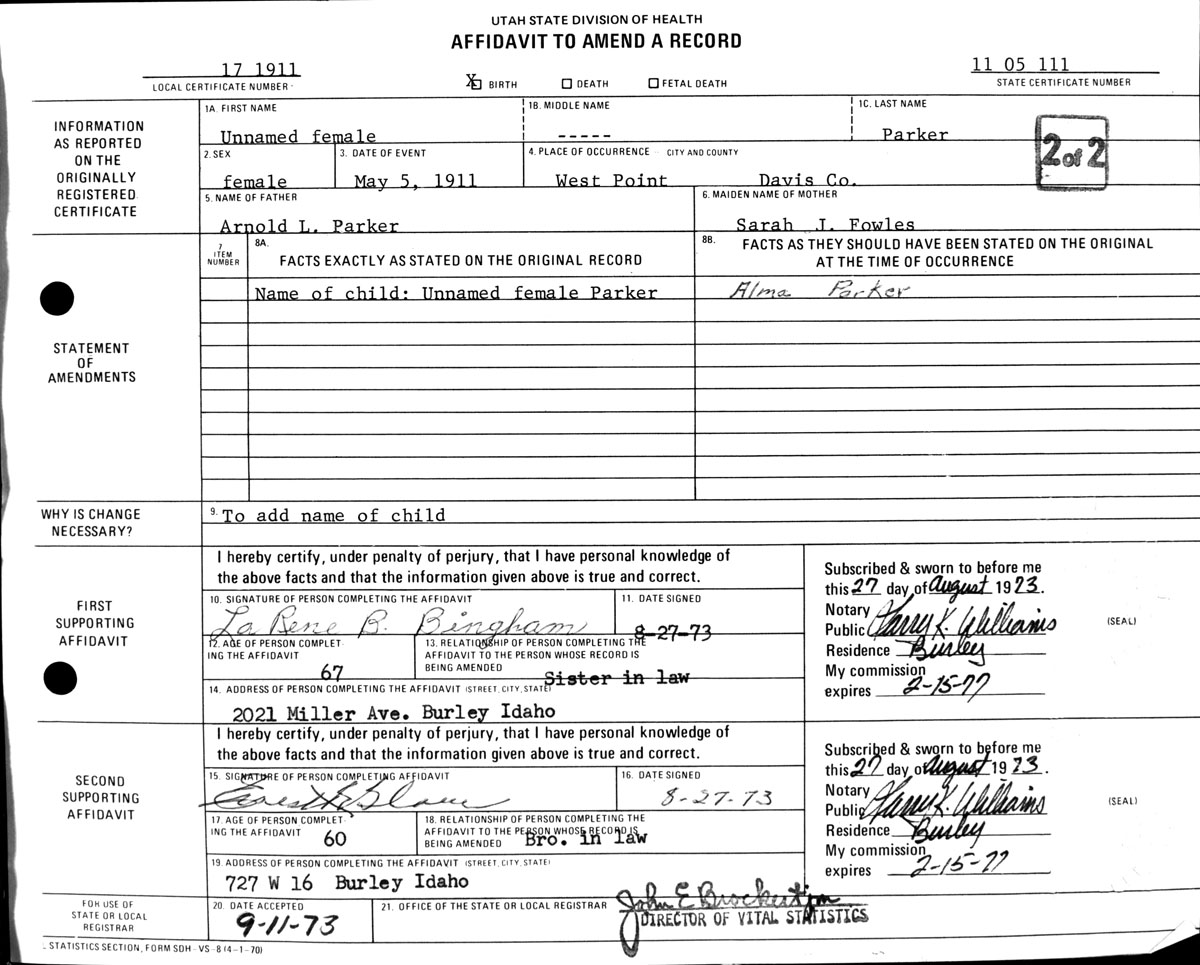 UTAH STATE DIVISION OF HEALTH
AFFIDAVIT TO AMEND A RECORD
17 1911
LOCAL CERTIFICATE NUMBER
X BIRTH DEATH FETAL DEATH
11 05 111
STATE CERTIFICATE NUMBER
INFORMATION
AS REPORTED
ON THE
ORIGINALLY
REGISTERED
CERTIFICATE
1A. FIRST NAME 1B. MIDDLE NAME 1C. LAST NAME
Unnamed female ----- Parker
2 of 2
2. SEX 3. DATE OF EVENT 4. PLACE OF OCCURRENCE - CITY AND COUNTY
female May 5, 1911 West Point Davis Co.
5. NAME OF FATHER 6. MAIDEN NAME OF MOTHER
Arnold L. Parker Sarah J. Fowles
STATEMENT
OF
AMENDMENTS
7
ITEM
NUMBER
8A.
FACTS EXACTLY AS STATED ON THE ORIGINAL RECORD
8B. FACTS AS THEY SHOULD HAVE BEEN STATED ON THE ORIGINAL
AT THE TIME OF OCCURRENCE
Name of child: Unnamed female Parker Alma Parker
WHY IS CHANGE
NECESSARY?
9. To add name of child
FIRST
SUPPORTING
AFFIDAVIT
I hereby certify, under penalty of perjury, that I have personal knowledge of
the above facts and that the information given above is true and correct.
10. SIGNATURE OF PERSON COMPLETING THE AFFIDAVIT 11. DATE SIGNED
La Rene B. Bingham 8-27-73
12. AGE OF PERSON COMPLET-
ING THE AFFIDAVIT
67
13. RELATIONSHIP OF PERSON COMPLETING THE
AFFIDAVIT TO THE PERSON WHOSE RECORD IS
BEING AMENDED
Sister in law
14. ADDRESS OF PERSON COMPLETING THE AFFIDAVIT (STREET, CITY, STATE)
2021 Miller Ave. Burley Idaho
Subscribed & sworn to before me
this 27 day of August 1973.
Notary
Public Harry K. Williams
(SEAL)
Residence Burley
My commission
expires 2-15-77
SECOND
SUPPORTING
AFFIDAVIT
I hereby certify, under penalty of perjury, that I have personal knowledge of
the above facts and that the information given above is true and correct.
15. SIGNATURE OF PERSON COMPLETING AFFIDAVIT 16. DATE SIGNED
8-27-73
17. AGE OF PERSON COMPLET-
ING THE AFFIDAVIT
60
18. RELATIONSHIP OF PERSON COMPLETING THE
AFFIDAVIT TO THE PERSON WHOSE RECORD IS
BEING AMENDED
Bro. in law
19. ADDRESS OF PERSON COMPLETING THE AFFIDAVIT (STREET, CITY, STATE)
727 W 16 Burley Idaho
Subscribed & sworn to before me
this 27 day of August 1973.
Notary
Public Harry K. Williams
(SEAL)
Residence Burley
My commission
expires 2-15-77
FOR USE OF
STATE OR LOCAL
REGISTRAR
20. DATE ACCEPTED
9-11-73
21. OFFICE OF THE STATE OR LOCAL REGISTRAR
John E. Brockert
DIRECTOR OF VITAL STATISTICS
STATISTICS SECTION, FORM SDH - VS - 8 (4-1-70)